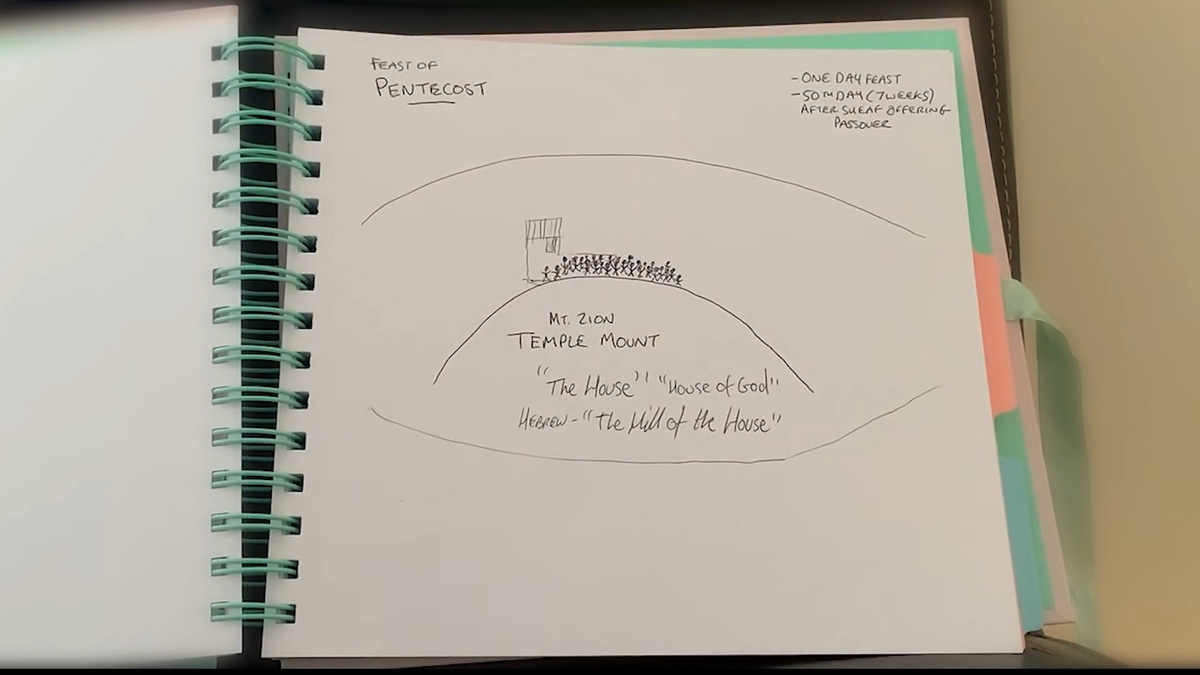 FEAST OF
PENTECOST
- ONE DAY FEAST
- 50TH DAY (7 WEEKS)
AFTER SHEAF OFFERING
PASSOVER
MT. ZION
TEMPLE MOUNT
"The House" "House of God"
HEBREW - "The Hill of the House"